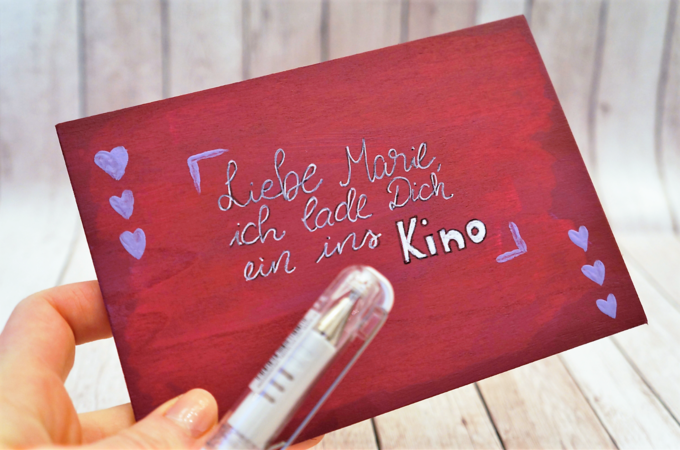 Liebe Marie,
ich lade Dich
ein ins Kino